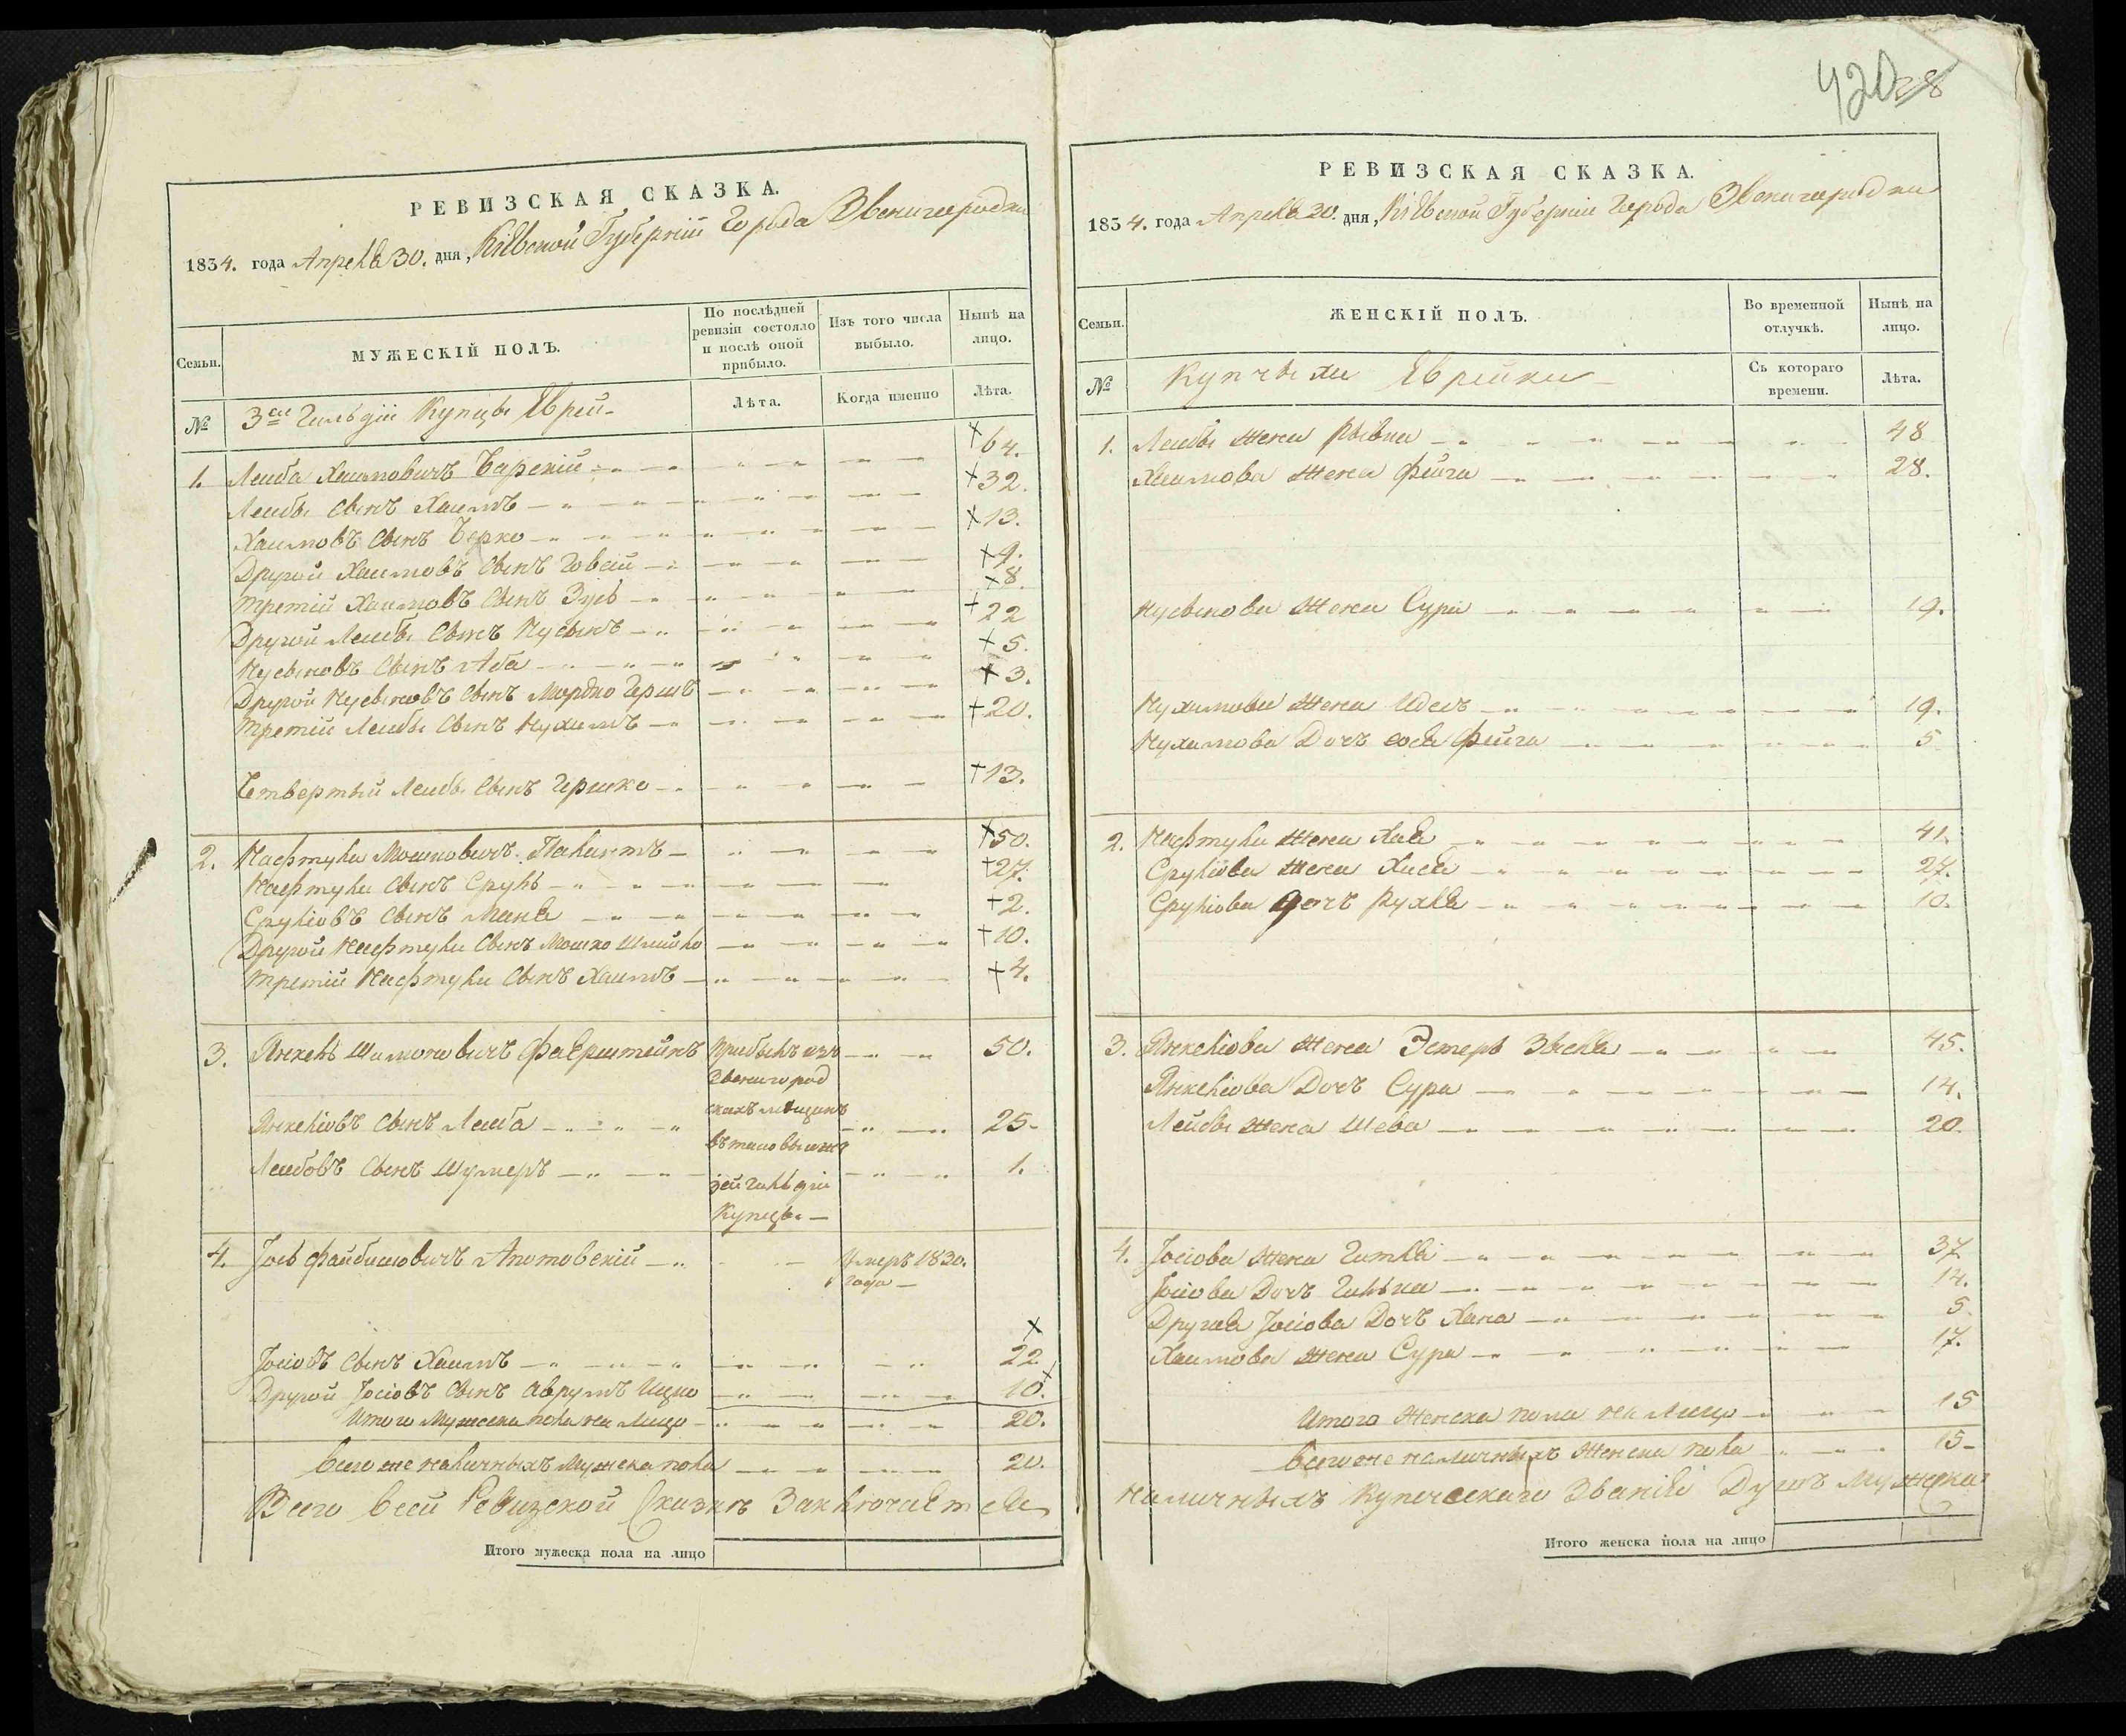 420
28
РЕВИЗСКАЯ СКАЗКА.
1834. года Апреля 30. дня, Кіевской Губерніи Города Звенигородки
Семьи.
МУЖЕСКІЙ ПОЛЪ.
По послѣдней ревизіи состояло и послѣ оной прибыло.
Изъ того числа выбыло.
Нынѣ на лицо.
№
3ей Гильдіи Купцы Евреи
Лѣта.
Когда именно
Лѣта.
1. Лейба Хаимовичъ Барскій 64.
Лейбы сынъ Хаимъ 32.
Хаимовъ сынъ Берко 13.
Другой Хаимовъ сынъ Говсій 9.
Третій Хаимовъ сынъ Зусь 8.
Другой Лейбы сынъ Нусынъ 22
Нусыновъ сынъ Аба 5.
Другой Нусыновъ сынъ Мордко Гершъ 3.
Третій Лейбы сынъ Нухимъ 20.
Четвертый Лейбы сынъ Гершко 13.
2. Нафтула Мошковичъ 50.
Нафтулы сынъ Сруль 27.
Сруліовъ сынъ Маня 2.
Другой Нафтулы сынъ Мошко Шмойло 10.
Третій Нафтулы сынъ Хаимъ 4.
3. Янкель Шимоновичъ Фаерштейнъ Прибылъ изъ 50.
Звенигород
скихъ мещанъ
Янкеліовъ сынъ Лейба 25
Лейбовъ сынъ Шумеръ 1.
зей Гильдіи
Купцы
4. Іось Файбишовичъ Апотовскій Умеръ 1830.
года
Іосіовъ сынъ Хаимъ 22
Другой Іосіовъ сынъ Аврумъ Ицко 10.
Итого Мужеска пола на Лицо 20.
Всего же наличныхъ Мужеска пола 20.
Всего всей Ревизской Сказкѣ Заключается
Итого мужеска пола на лицо
РЕВИЗСКАЯ СКАЗКА.
1834. года Апреля 30. дня, Кіевской Губерніи Города Звенигородки
Семьи.
ЖЕНСКІЙ ПОЛЪ.
Во временной отлучкѣ.
Нынѣ на лицо.
№
Купчихи Еврейки
Съ котораго времени.
Лѣта.
1. Лейбы жена Рывка 48
Хаимова жена Фейга 28.
Нусынова жена Сура 19.
Нухимова жена Идесъ 19.
Нухимова Дочъ Фейга 5
2. Нафтулы жена Хая 41.
Сруліова жена Хася 27.
Сруліова дочъ Рухля 10.
3. Янкеліова жена Эстеръ 45.
Янкеліова Дочъ Сура 14.
Лейбы жена Шева 20.
4. Іосіова жена Гитля 37
Іосіова Дочъ 14.
Другая Іосіова Дочъ Хана 5.
Хаимова жена Сура 17.
Итого Женска пола на Лицо 15
Всего же наличныхъ Женска пола 15
Наличныхъ Купеческаго Званія Душъ Мужеска
Итого женска пола на лицо